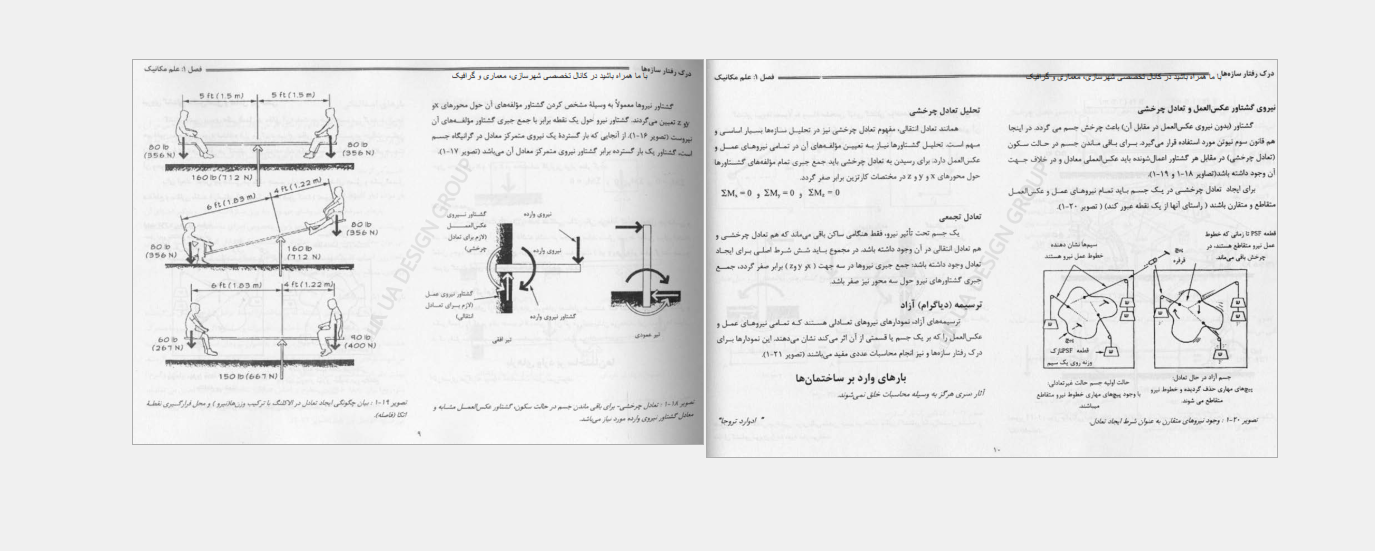 درک رفتار سازه‌ها
با ما همراه باشید در کانال تخصصی شهرسازی، معماری و گرافیک
فصل ۱: علم مکانیک
نیروی گشتاور عکس‌العمل و تعادل چرخشی
گشتاور (بدون نیروی عکس‌العمل در مقابل آن) باعث چرخش جسم می گردد. در اینجا
هم قانون سوم نیوتن مورد استفاده قرار می‌گیرد. برای باقی ماندن جسم در حالت سکون
(تعادل چرخشی) در مقابل هر گشتاور اعمال‌شونده باید عکس‌العملی معادل و در خلاف جهت
آن وجود داشته باشد(تصاویر ۱۸-۱ و ۱۹-۱).
برای ایجاد تعادل چرخشی در یک جسم باید تمام نیروهای عمل و عکس‌العمل
متقاطع و متقارن باشند ( راستای آنها از یک نقطه عبور کند) ( تصویر ۲۰-۱).
قطعه PSF تا زمانی که خطوط
عمل نیرو متقاطع هستند، در
چرخش باقی می‌ماند.
پیچ
قرقره
سیم‌ها نشان دهنده
خطوط عمل نیرو هستند
W
پیچ
قطعه PSFنازک
وزنه روی یک سیم
جسم آزاد در حال تعادل:
پیچ‌های مهاری حذف گردیده و خطوط نیرو
متقاطع می شوند.
حالت اولیه جسم حالت غیرتعادلی:
با وجود پیچ‌های مهاری خطوط نیرو متقاطع
میباشند.
تصویر ۲۰-۱ : وجود نیروهای متقارن به عنوان شرط ایجاد تعادل.
تحلیل تعادل چرخشی
همانند تعادل انتقالی، مفهوم تعادل چرخشی نیز در تحلیل سازه‌ها بسیار اساسی و
مهم است. تحلیل گشتاورها نیاز به تعیین مؤلفه‌های آن در تمامی نیروهای عمل و
عکس‌العمل دارد. برای رسیدن به تعادل چرخشی باید جمع جبری تمام مؤلفه‌های گشتاورها
حول محورهای x و y و z در مختصات کارتزین برابر صفر گردد.
ΣMx = 0 و ΣMy = 0 و ΣMz = 0
تعادل تجمعی
یک جسم تحت تأثیر نیرو، فقط هنگامی ساکن باقی می‌ماند که هم تعادل چرخشی و
هم تعادل انتقالی در آن وجود داشته باشد. در مجموع باید شش شرط اصلی برای ایجاد
تعادل وجود داشته باشد: جمع جبری نیروها در سه جهت ( x و y و z ) برابر صفر گردد، جمع
جبری گشتاورهای نیرو حول سه محور نیز صفر باشد.
ترسیمه (دیاگرام) آزاد
ترسیمه‌های آزاد، نمودارهای نیروهای تعادلی هستند که تمامی نیروهای عمل و
عکس‌العمل را که بر یک جسم یا قسمتی از آن اثر می‌کند نشان می‌دهند. این نمودارها برای
درک رفتار سازه‌ها و نیز انجام محاسبات عددی مفید می‌باشند (تصویر ۲۱-۱).
بارهای وارد بر ساختمان‌ها
آثار سری هرگز به وسیله محاسبات خلق نمی‌شوند.
" ادوارد تروجا"
۱۰
درک رفتار سازه‌ها
با ما همراه باشید در کانال تخصصی شهرسازی، معماری و گرافیک
فصل ۱: علم مکانیک
گشتاور نیروها معمولاً به وسیلهٔ مشخص کردن گشتاور مؤلفه‌های آن حول محورهای x و
y و z تعیین می‌گردند. گشتاور نیرو حول یک نقطه برابر با جمع جبری گشتاور مؤلفه‌های آن
نیروست (تصویر ۱۶-۱). از آنجایی که بار گستردهٔ یک نیروی متمرکز معادل در گرانیگاه جسم
است، گشتاور یک بار گسترده برابر گشتاور نیروی متمرکز معادل آن می‌باشد (تصویر ۱۷-۱).
نیروی وارده
گشتاور نیروی
عکس‌العمل
(لازم برای تعادل
چرخشی)
نیروی وارده
گشتاور نیروی عمل
(لازم برای تعادل
انتقالی)
گشتاور نیروی وارده
تیر افقی
تیر عمودی
تصویر ۱۸-۱ : تعادل چرخشی- برای باقی ماندن جسم در حالت سکون، گشتاور عکس‌العمل مشابه و
معادل گشتاور نیروی وارده مورد نیاز می‌باشد.
5 ft (1.5 m) 5 ft (1.5 m)
80 lb
(356 N)
80 lb
(356 N)
160 lb (712 N)
6 ft (1.83 m) 4 ft (1.22 m)
80 lb
(356 N)
80 lb
(356 N)
160 lb
(712 N)
6 ft (1.83 m) 4 ft (1.22 m)
60 lb
(267 N)
90 lb
(400 N)
150 lb (667 N)
تصویر ۱۹-۱ : بیان چگونگی ایجاد تعادل در الاکلنگ با ترکیب وزن‌ها(نیرو ) و محل قرارگیری نقطهٔ
اتکا (فاصله).
۹
UA DESIGN GROUP
UA DESIGN GROUP